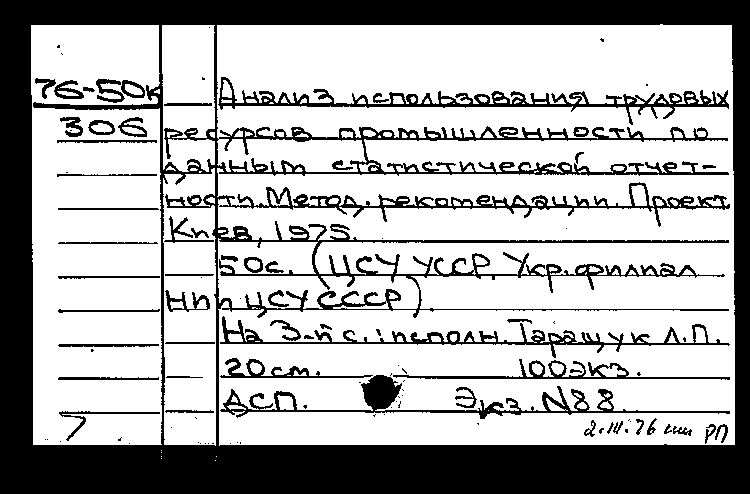 76-50к Анализ использования трудовых
306 ресурсов промышленности по
данным статистической отчет-
ности. Метод. рекомендации. Проект
Киев, 1975.
50с. (ЦСУ УССР. Укр. филиал
НИИ ЦСУ СССР).
На 3-й с.: исполн. Таращук Л.П.
20см. 100экз.
ДСП. Экз. N88.
7 2.III.76 РП